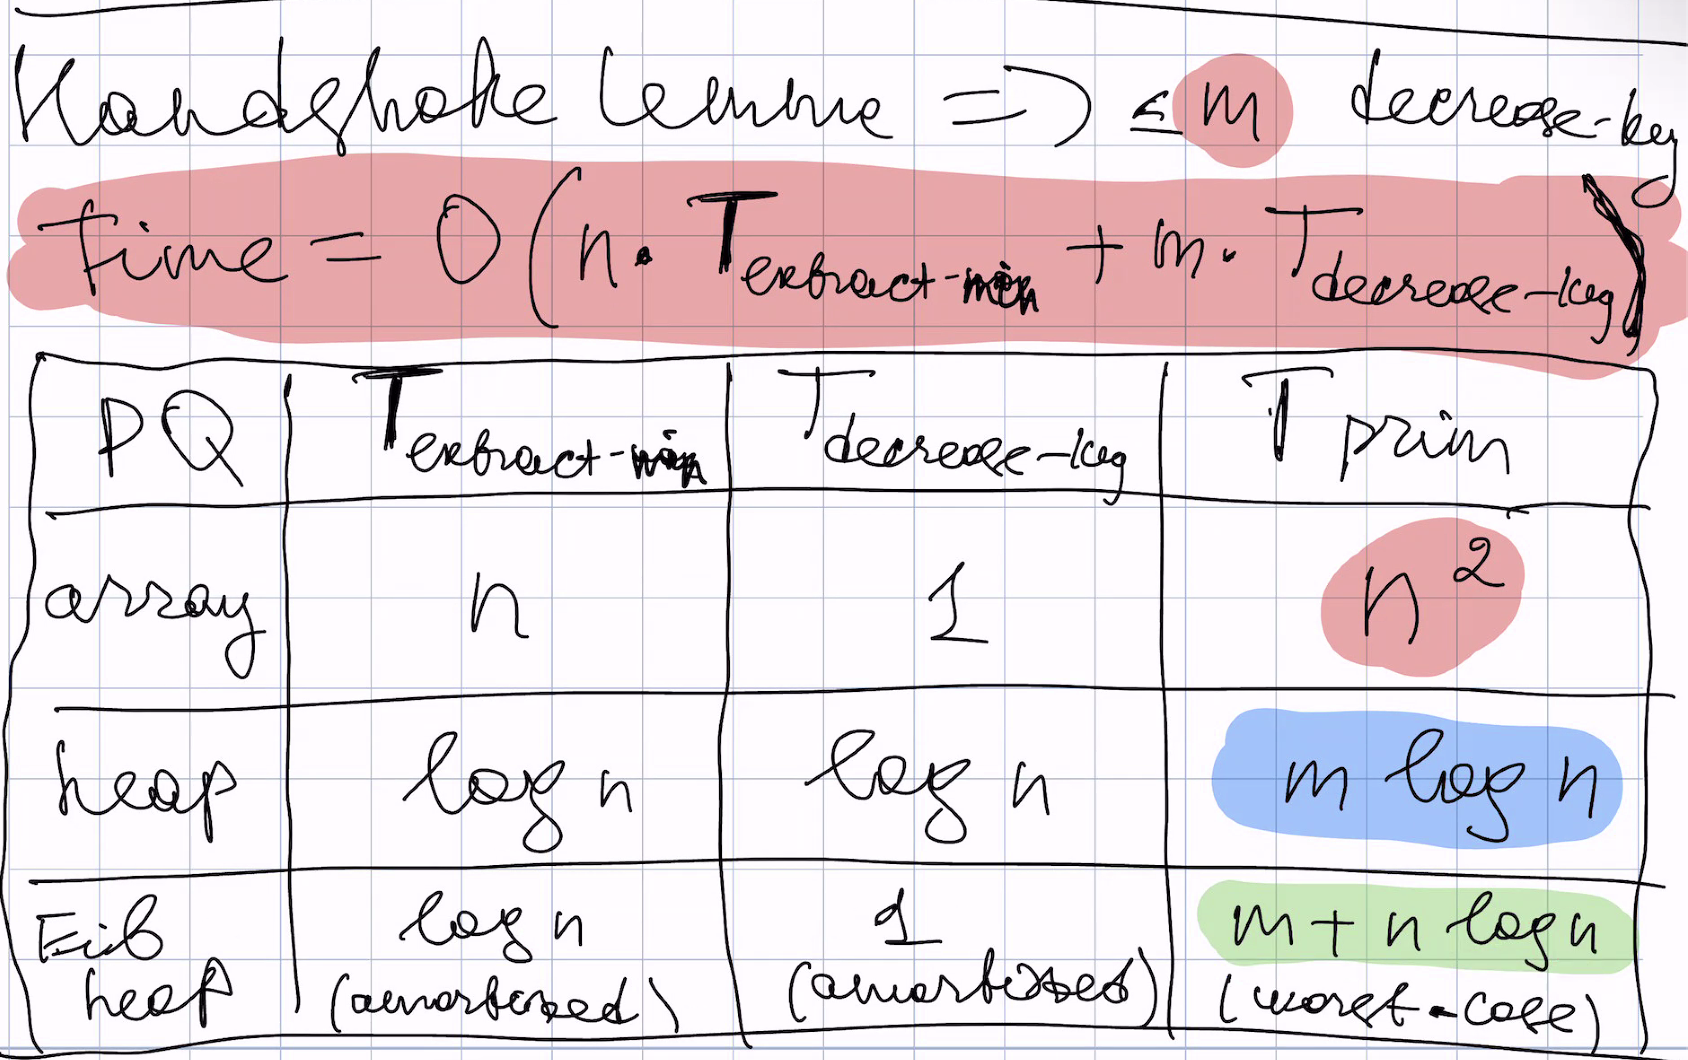 Handshake lemma => ≤ m decrease-key
Time = O(n · T extract-min + m · T decrease-key)
PQ T extract-min T decrease-key T prim
array n 1 n²
heap log n log n m log n
Fib heap log n (amortized) 1 (amortized) m + n log n (worst-case)